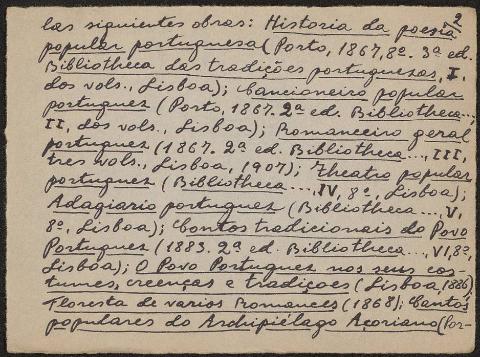 2
las siguientes obras: Historia da poesia
popular portuguesa (Porto, 1867, 8º. 3ª ed.
Bibliotheca das tradições portuguezas, I,
dos vols., Lisboa); Cancioneiro popular
portuguez (Porto, 1867. 2ª ed. Bibliotheca...,
II, dos vols., Lisboa); Romanceiro geral
portuguez (1867. 2ª ed. Bibliotheca..., III,
tres vols., Lisboa, 1907); Theatro popular
portuguez (Bibliotheca..., IV, 8º, Lisboa);
Adagiario portuguez (Bibliotheca..., V,
8º, Lisboa); Contos tradicionaes do Povo
Portuguez (1883. 2ª ed. Bibliotheca..., VI, 8º,
Lisbôa); O Povo Portuguez nos seus cos-
tumes, creenças e tradiçoes (Lisboa, 1886);
Floresta de varios Romances (1868); Cantos
populares do Archipiélago Açoriano (Por-